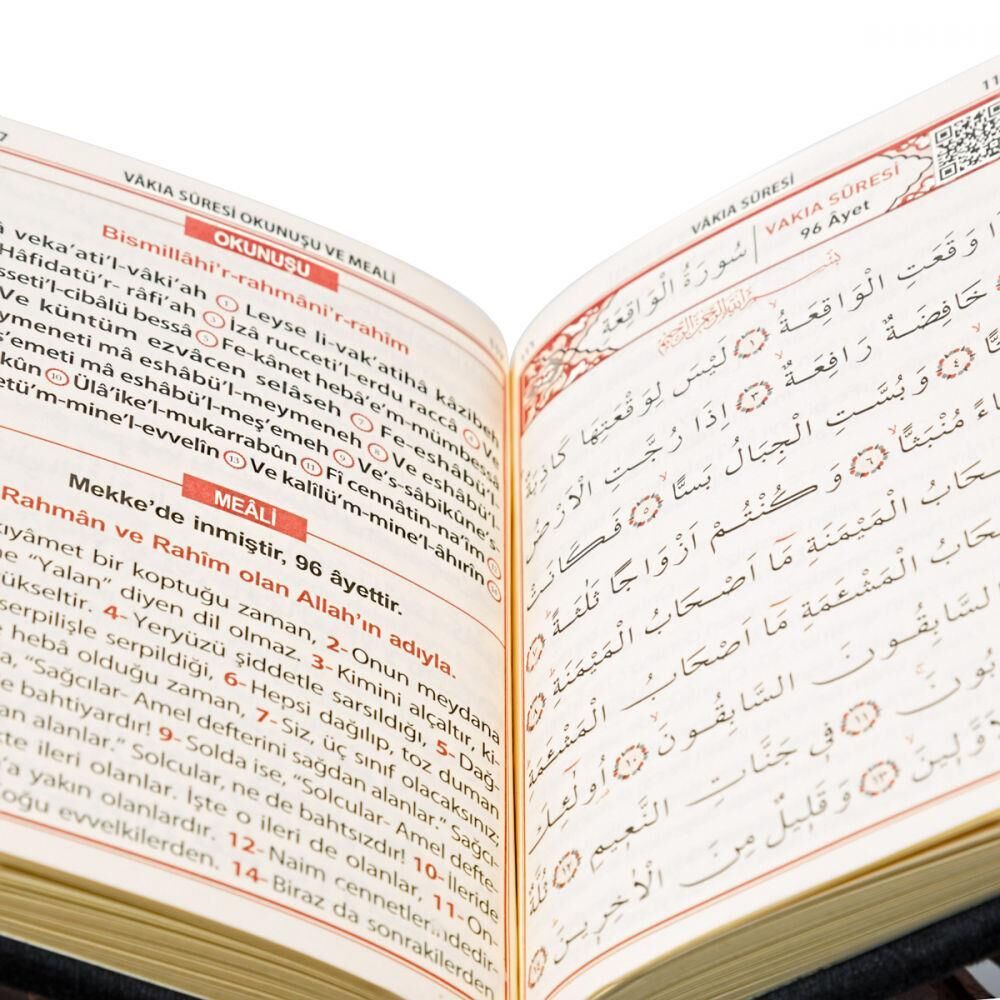 VÂKIA SÛRESİ OKUNUŞU VE MEALİ
OKUNUŞU
Bismillâhi'r-rahmâni'r-rahîm
veka'ati'l-vâki'ah ① Leyse li-vak'atihâ kâzibeh
Hâfidatü'r- râfi'ah ③ İzâ rucceti'l-erdu raccâ ④ Ve
sseti'l-cibâlü bessâ ⑤ Fe-kânet hebâ'e'm-mümbessâ
Ve küntüm ezvâcen selâseh ⑦ Fe-eshâbü'l-
ymeneti mâ eshâbü'l-meymeneh ⑧ Ve eshâbü'l-
ş'emeti mâ eshâbü'l-meş'emeh ⑨ Ve's-sâbikûne's-
kûn ⑩ Ülâ'ike'l-mukarrabûn ⑪ Fî cennâtin-na'îm ⑫
etü'm-mine'l-evvelîn ⑬ Ve kalîlü'm-mine'l-âhırîn ⑭
MEÂLİ
Mekke'de inmiştir, 96 âyettir.
Rahmân ve Rahîm olan Allah'ın adıyla.
kıyâmet bir koptuğu zaman, 2- Onun meydana
ne "Yalan" diyen dil olmaz. 3- Kimini alçaltır, ki-
ükseltir. 4- Yeryüzü şiddetle sarsıldığı, 5- Dağ-
serpilişle serpildiği, 6- Hepsi dağılıp, toz duman
heba olduğu zaman, 7- Siz, üç sınıf olacaksınız;
a, "Sağcılar- Amel defterini sağdan alanlar." Sağcı-
e bahtiyardır! 9- Solda ise, "Solcular- Amel defte-
an alanlar." Solcular, ne de bahtsızdır! 10- İleride
te ileri olanlar. İşte o ileri de olanlar, 11- On-
'a yakın olanlardır. 12- Naim cennetlerindedir-
oğu evvelkilerden. 14- Biraz da sonrakilerden
VÂKIA SÛRESİ
سُورَةُ الْوَاقِعَةِ
VAKIA SÛRESİ
96 Âyet
وَقَعَتِ الْوَاقِعَةُ ﴿١﴾ لَيْسَ لِوَقْعَتِهَا كَاذِبَةٌ
خَافِضَةٌ رَافِعَةٌ ﴿٣﴾ اِذَا رُجَّتِ الْاَرْضُ
﴿٤﴾ وَبُسَّتِ الْجِبَالُ بَسًّا ﴿٥﴾ فَكَانَتْ
مُنْبَثًّا ﴿٦﴾ وَكُنْتُمْ اَزْوَاجًا ثَلٰثَةً ﴿٧﴾
الْمَيْمَنَةِ مَٓا اَصْحَابُ الْمَيْمَنَةِ ﴿٨﴾
الْمَشْـَٔمَةِ مَٓا اَصْحَابُ الْمَشْـَٔمَةِ
السَّابِقُونَ السَّابِقُونَ ﴿١٠﴾ اُولٰٓئِكَ
﴿١١﴾ فِى جَنَّاتِ النَّعِيمِ ﴿١٢﴾ ثُلَّةٌ
﴿١٣﴾ وَقَلِيلٌ مِنَ الْاٰخِرِينَ ﴿١٤﴾